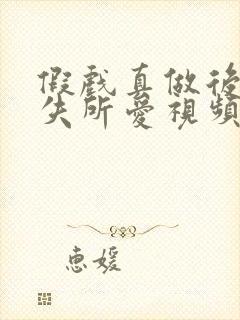 假戲真做後
失所愛視頻
惠媛